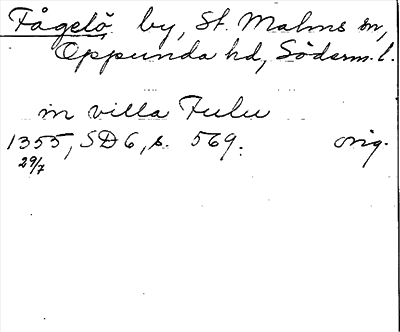 Fågelö by, St. Malms sn,
Oppunda hd, Söderm. l.
in villa Fulu
1355, SD 6, s. 569. orig.
29/7